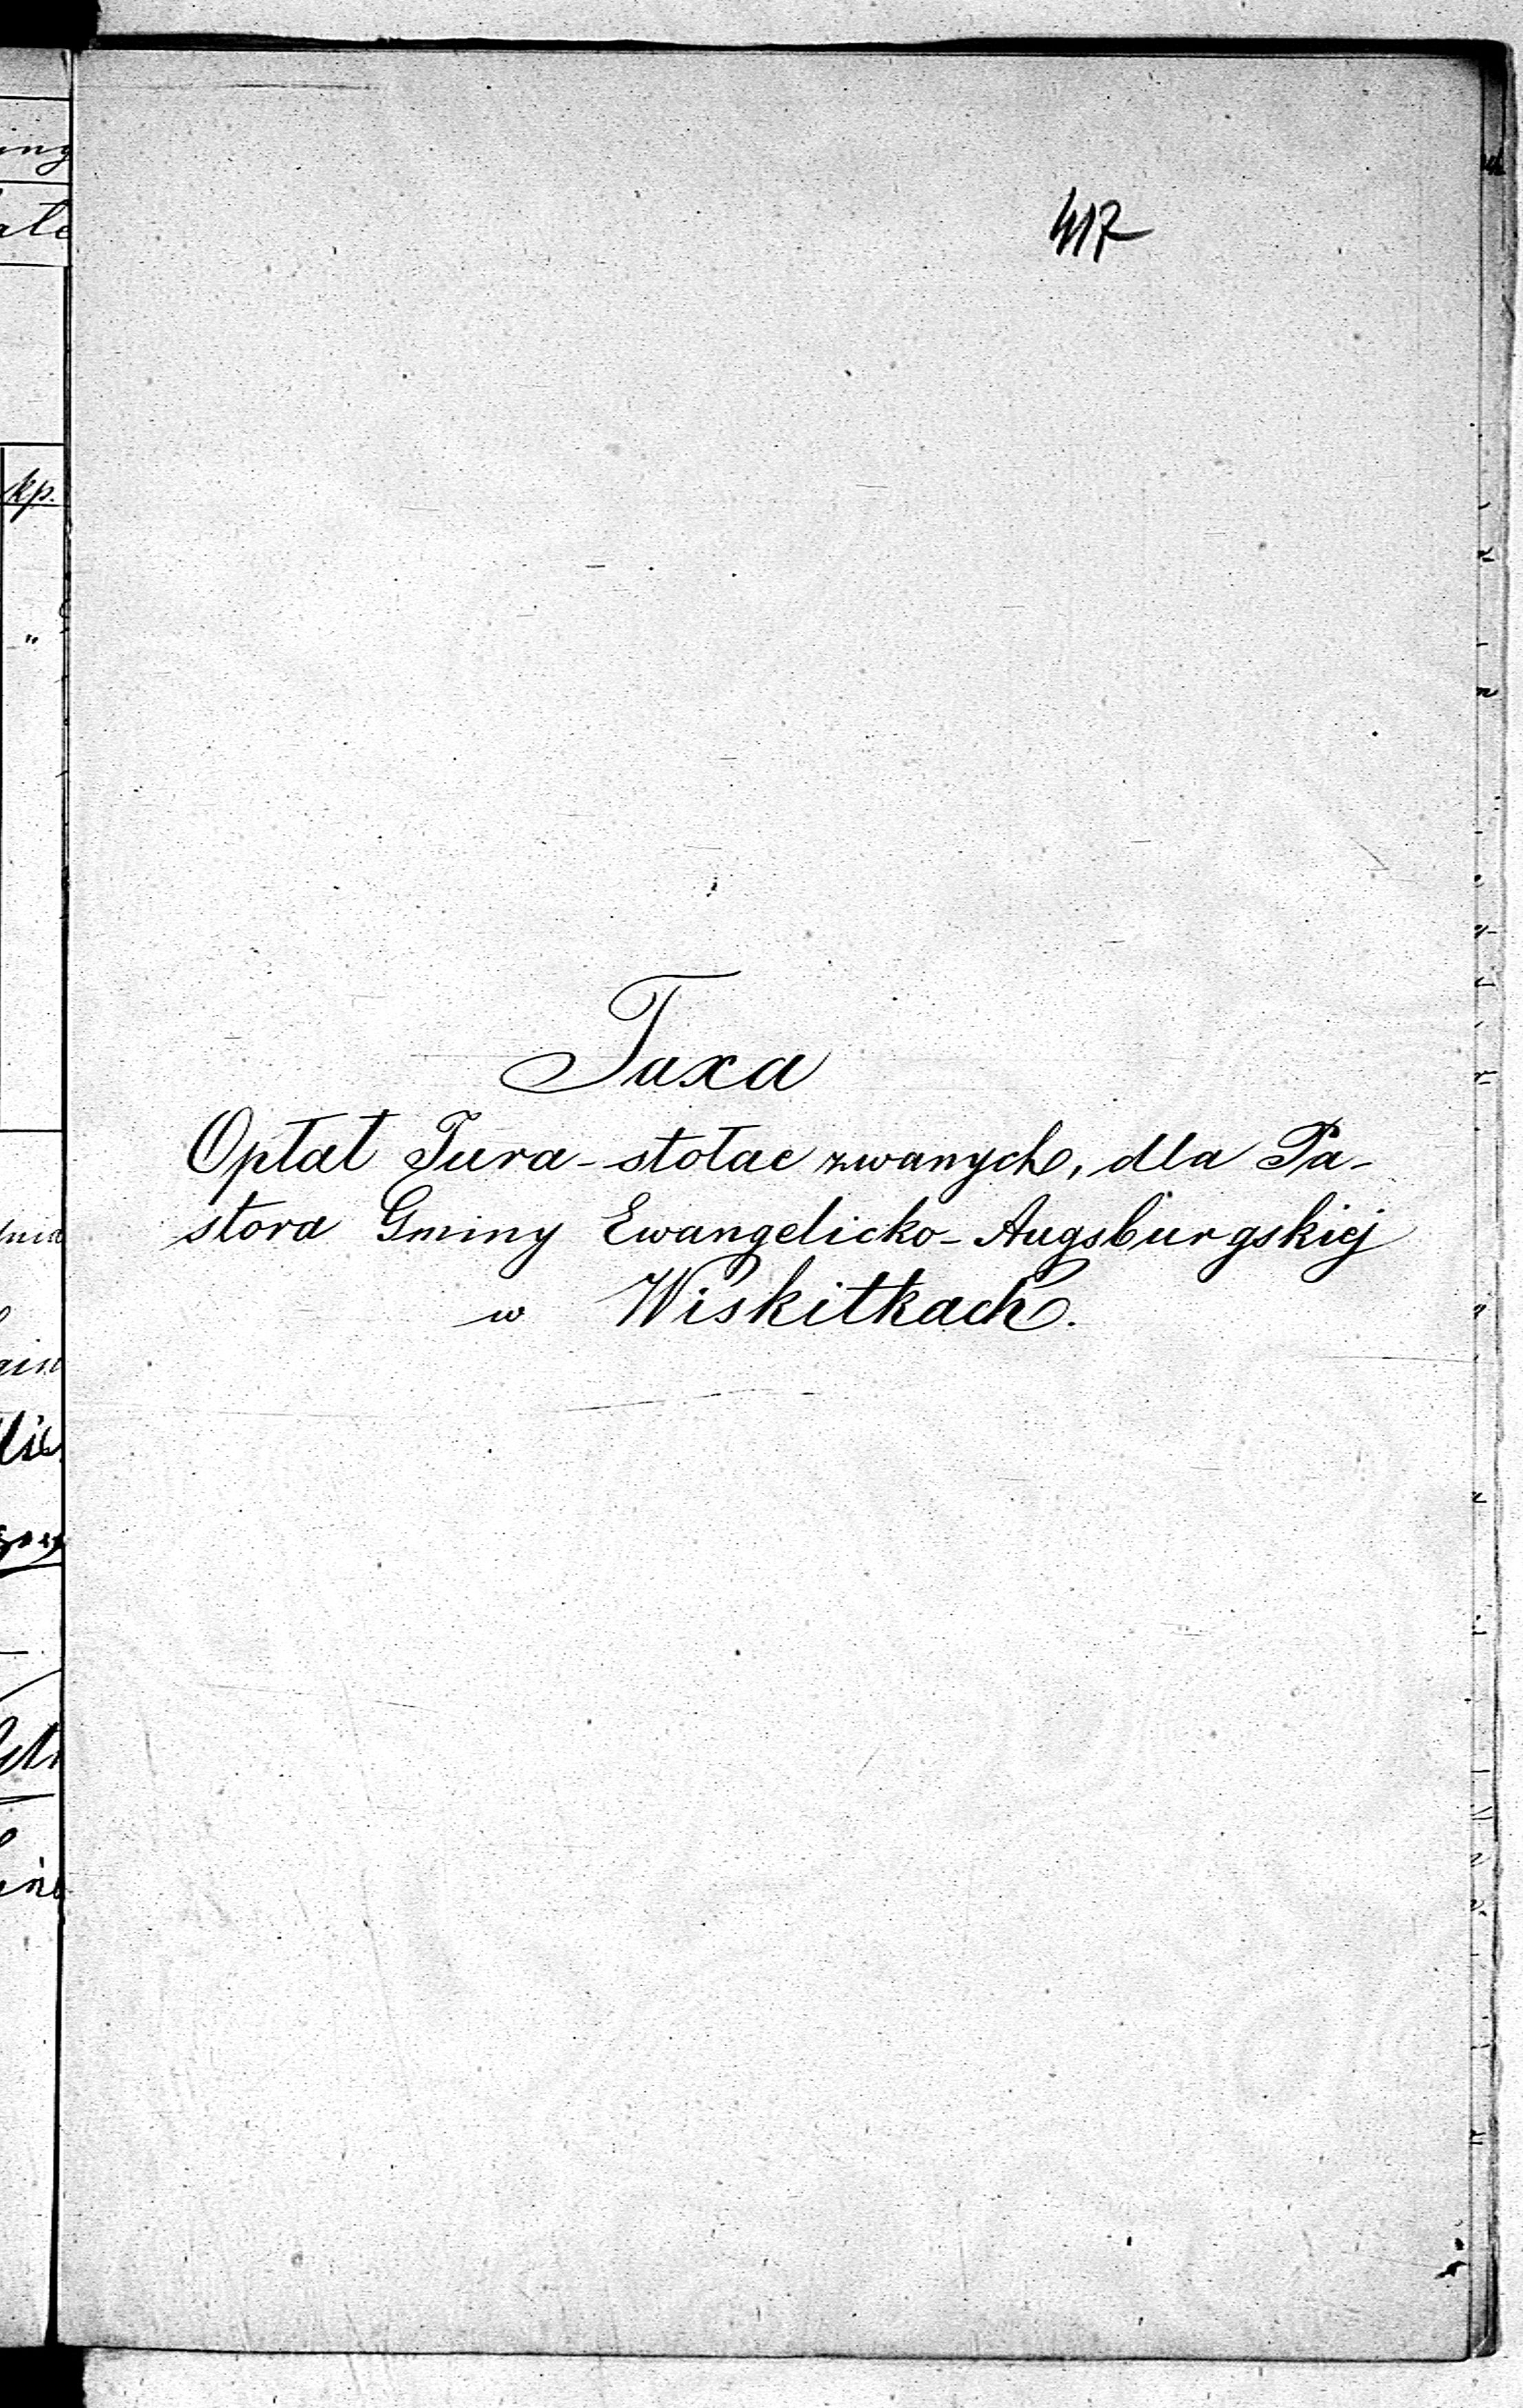 417
Taxa
Opłat Jura-stołae zwanych, dla Pa-
stora Gminy Ewangelicko-Augsburgskiej
w Wiskitkach.
kp.